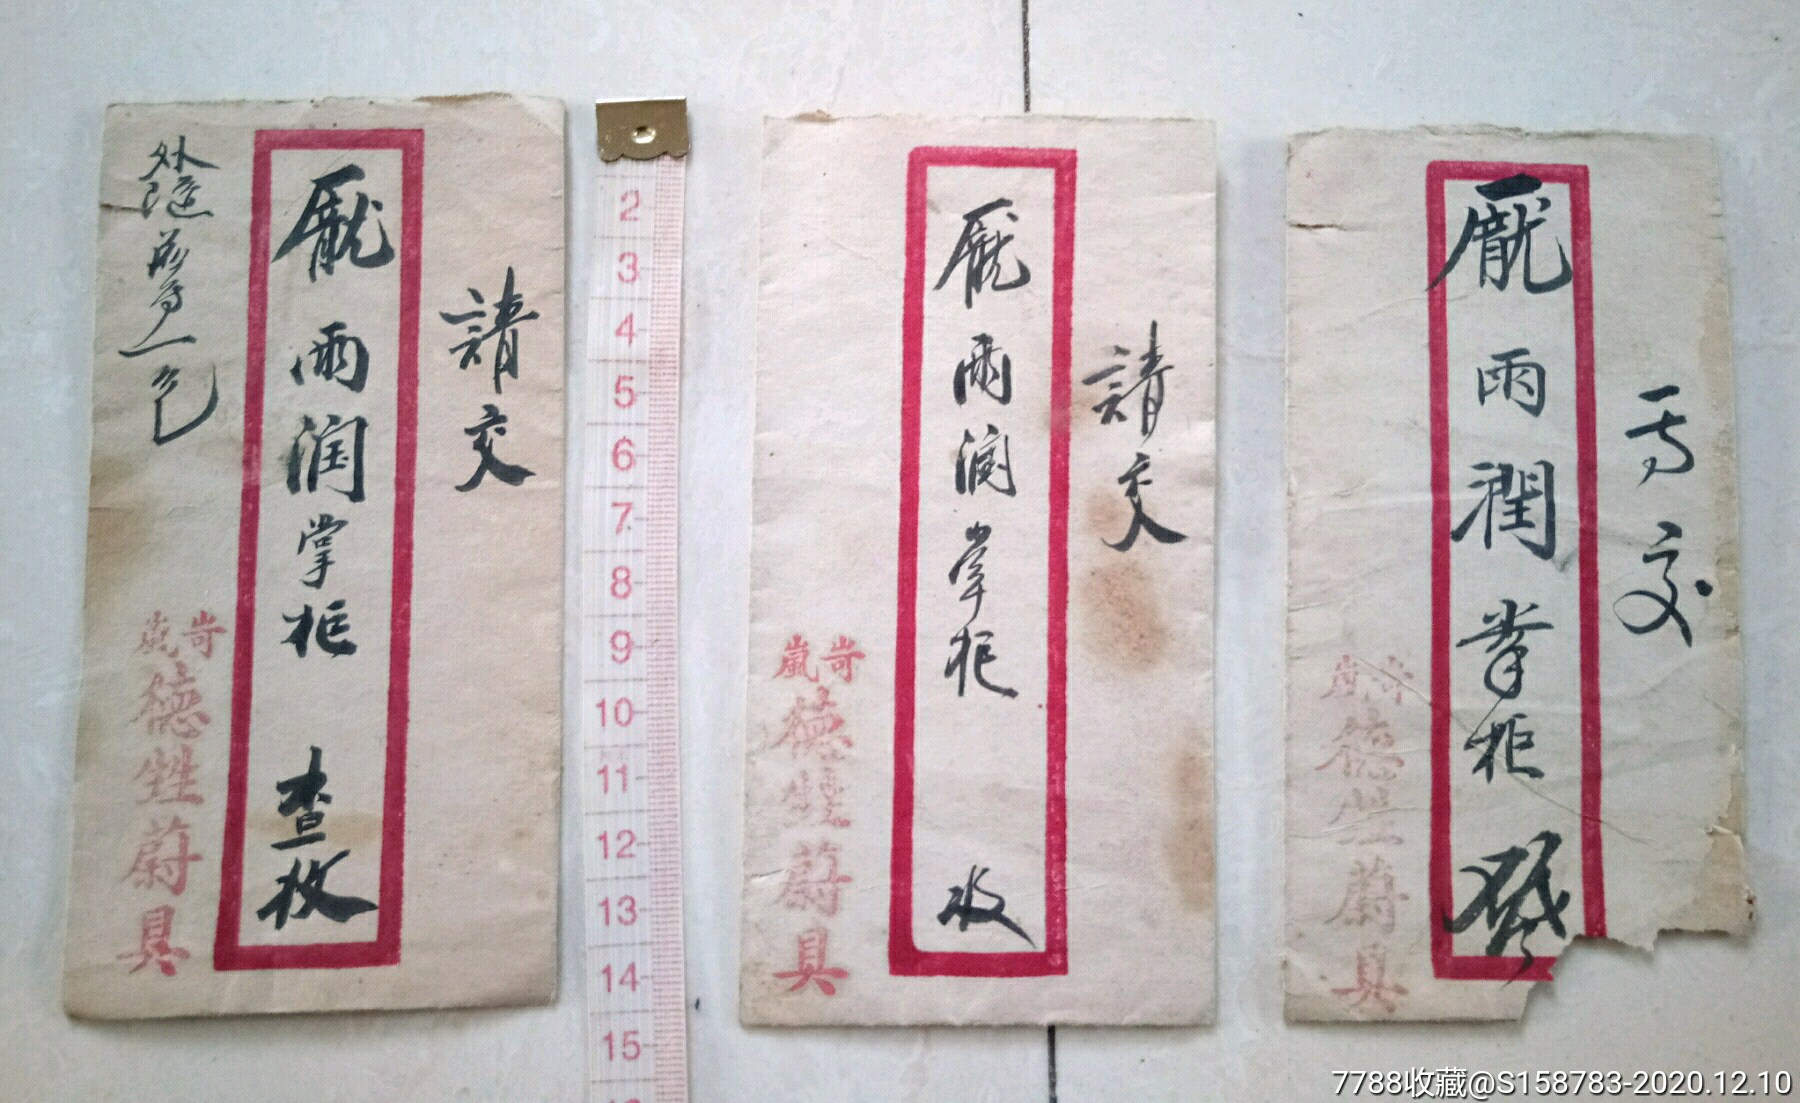 請交
龐雨润掌柜 查收
岢嵐
德甡蔚具
2
3
4
5
6
7
8
9
10
11
12
13
14
15
請交
龐雨润掌柜 收
岢嵐
德甡蔚具
交
龐雨潤掌柜
岢嵐
德甡蔚具
7788收藏@S158783-2020.12.10